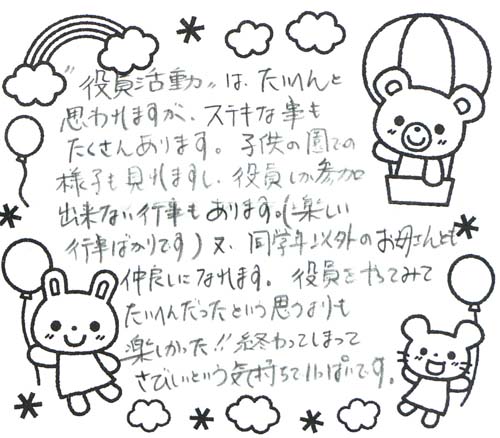 "役員活動"は、たいへんと
思われますが、ステキな事も
たくさんあります。子供の園での
様子も見れますし、役員しか参加
出来ない行事もあります。(楽しい
行事ばかりです)又、同学年以外のお母さんとも
仲良しになれます。役員をやってみて
たいへんだったという思うよりも
楽しかった!!終わってしまって
さびしいという気持ちでいっぱいです。